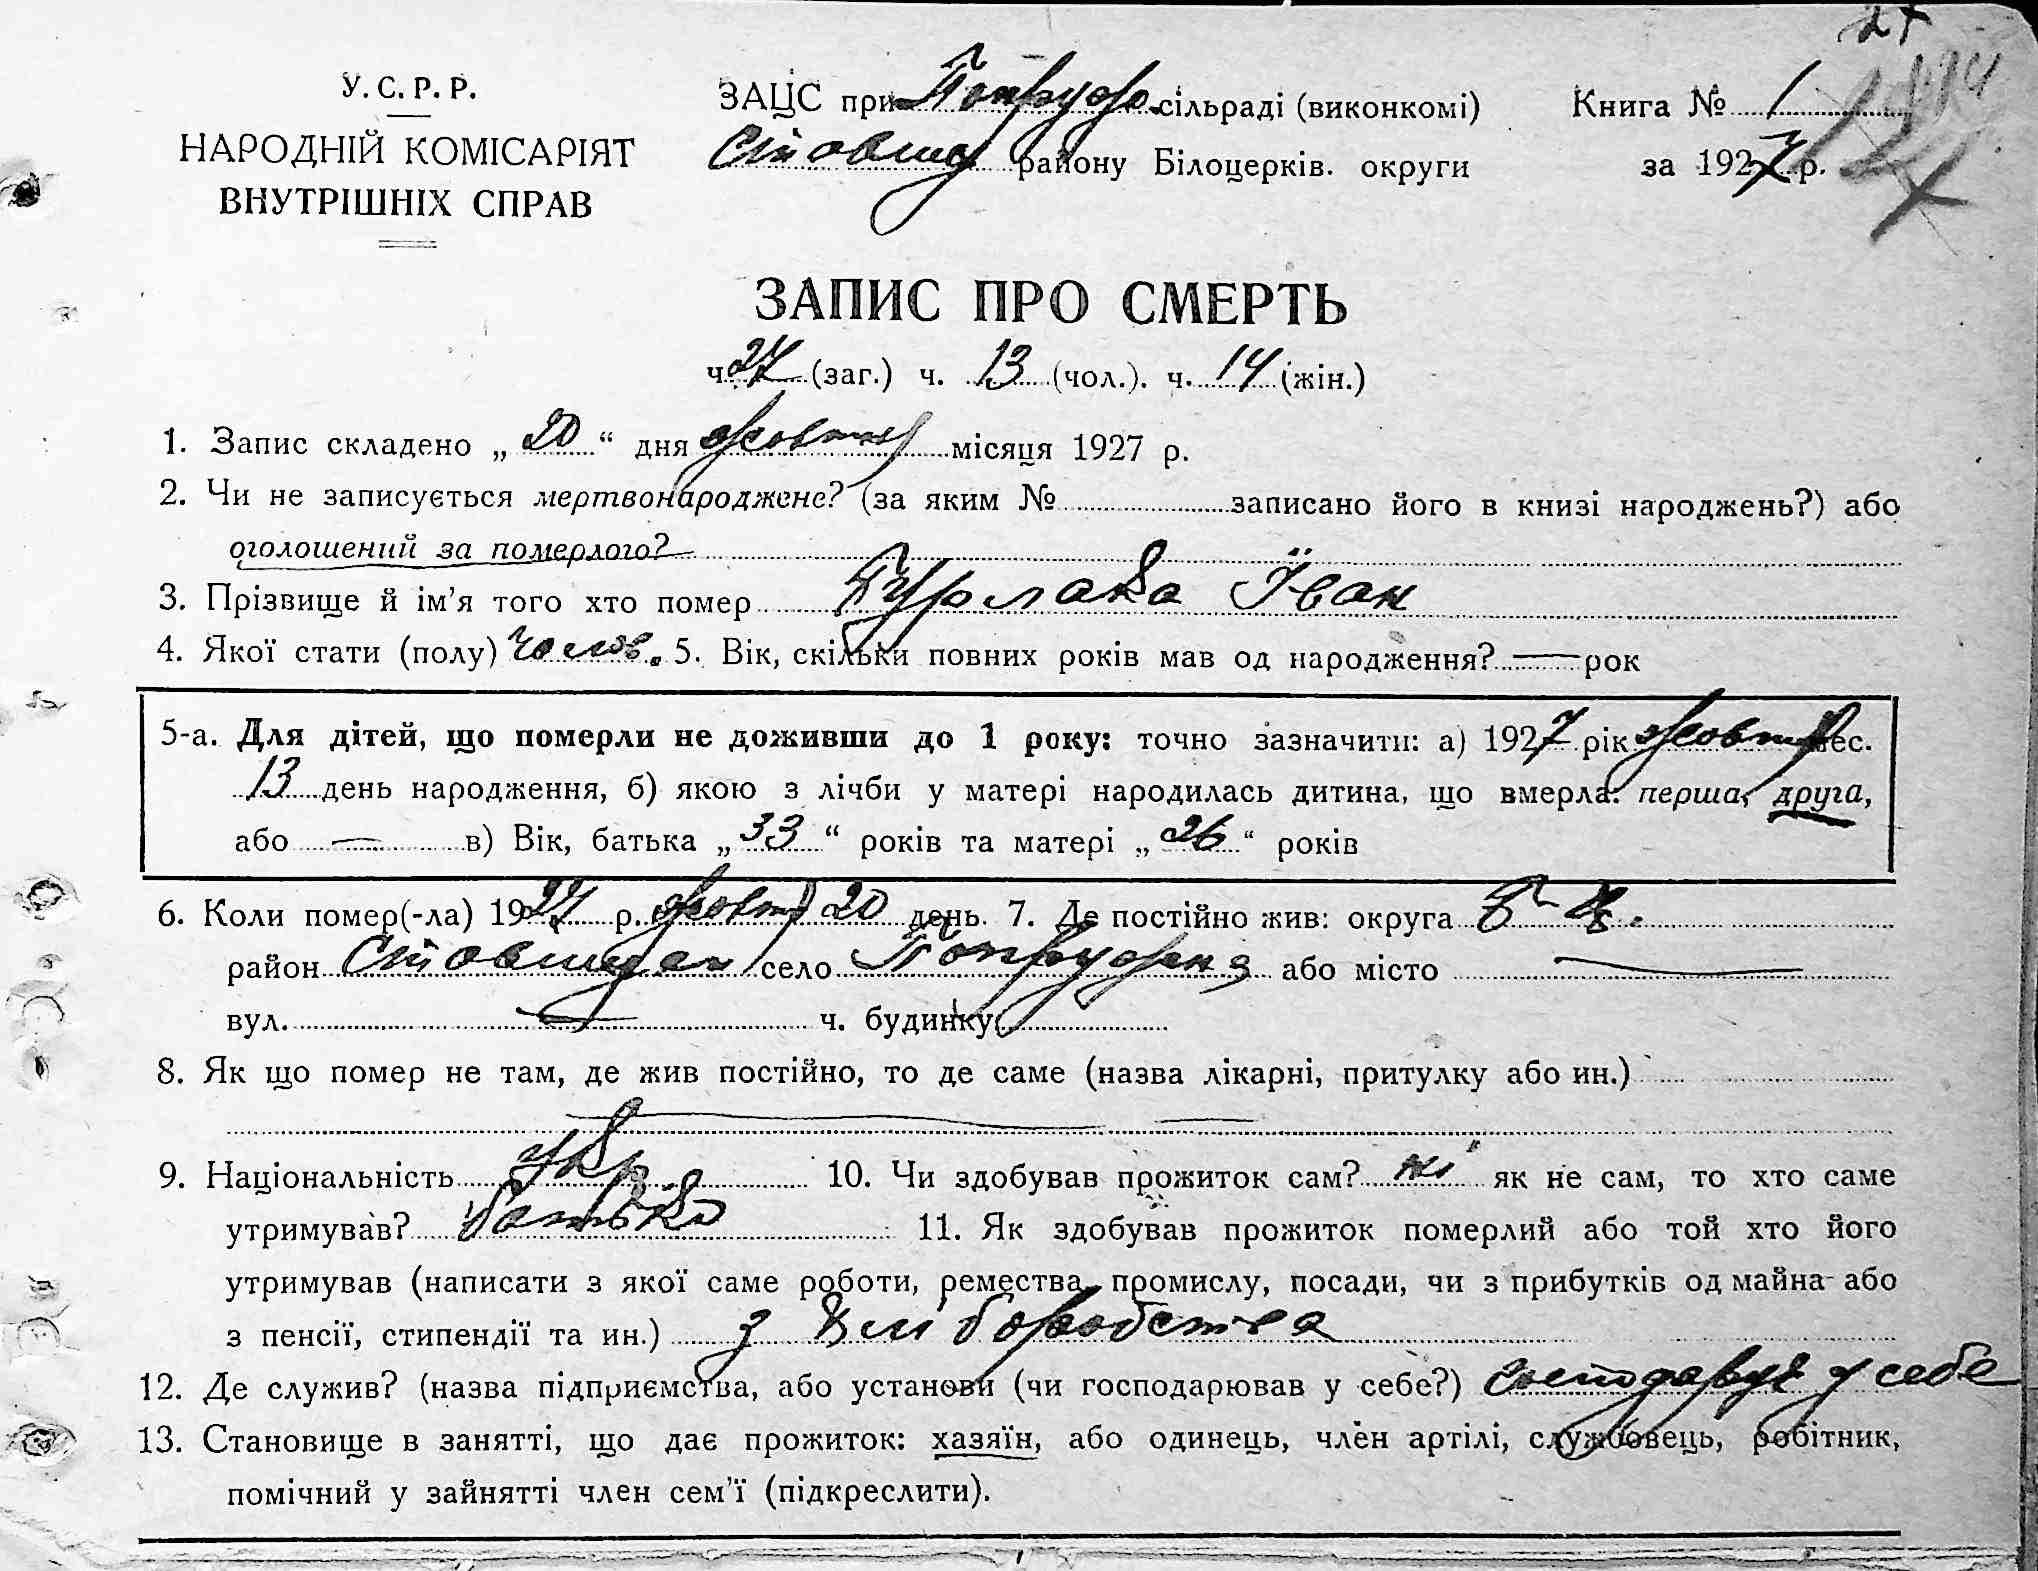 27
У.С.Р.Р.
НАРОДНІЙ КОМІСАРІЯТ
ВНУТРІШНІХ СПРАВ
ЗАЦС при Попруж. сільраді (виконкомі)
Ставищ району Білоцерків. округи
Книга № 1
за 1927 р.
ЗАПИС ПРО СМЕРТЬ
ч. 27 (заг.) ч. 13 (чол.). ч. 14 (жін.)
1. Запис складено „ 20 “ дня жовтня місяця 1927 р.
2. Чи не записується мертвонароджене? (за яким № записано його в книзі народжень?) або
оголошений за померлого?
3. Прізвище й ім’я того хто помер Бурлака Іван
4. Якої стати (полу) чолов. 5. Вік, скільки повних років мав од народження? — рок
5-а. Для дітей, що померли не доживши до 1 року: точно зазначити: а) 1927 рік жовт мес.
13 день народження, б) якою з лічби у матері народилась дитина, що вмерла: перша, друга,
або — в) Вік, батька „ 33 “ років та матері „ 26 “ років
6. Коли помер(-ла) 1927 р. жовт 20 день. 7. Де постійно жив: округа Б-Ц.
район Ставищен село Попружна або місто —
вул. — ч. будинку
8. Як що помер не там, де жив постійно, то де саме (назва лікарні, притулку або ин.)
9. Національність укр. 10. Чи здобував прожиток сам? ні як не сам, то хто саме
утримував? батько 11. Як здобував прожиток померлий або той хто його
утримував (написати з якої саме роботи, ремества, промислу, посади, чи з прибутків од майна або
з пенсії, стипендії та ин.) з хліборобства
12. Де служив? (назва підприємства, або установи (чи господарював у себе?) господарює у себе
13. Становище в занятті, що дає прожиток: хазяїн, або одинець, член артілі, службовець, робітник,
помічний у зайнятті член сем’ї (підкреслити).